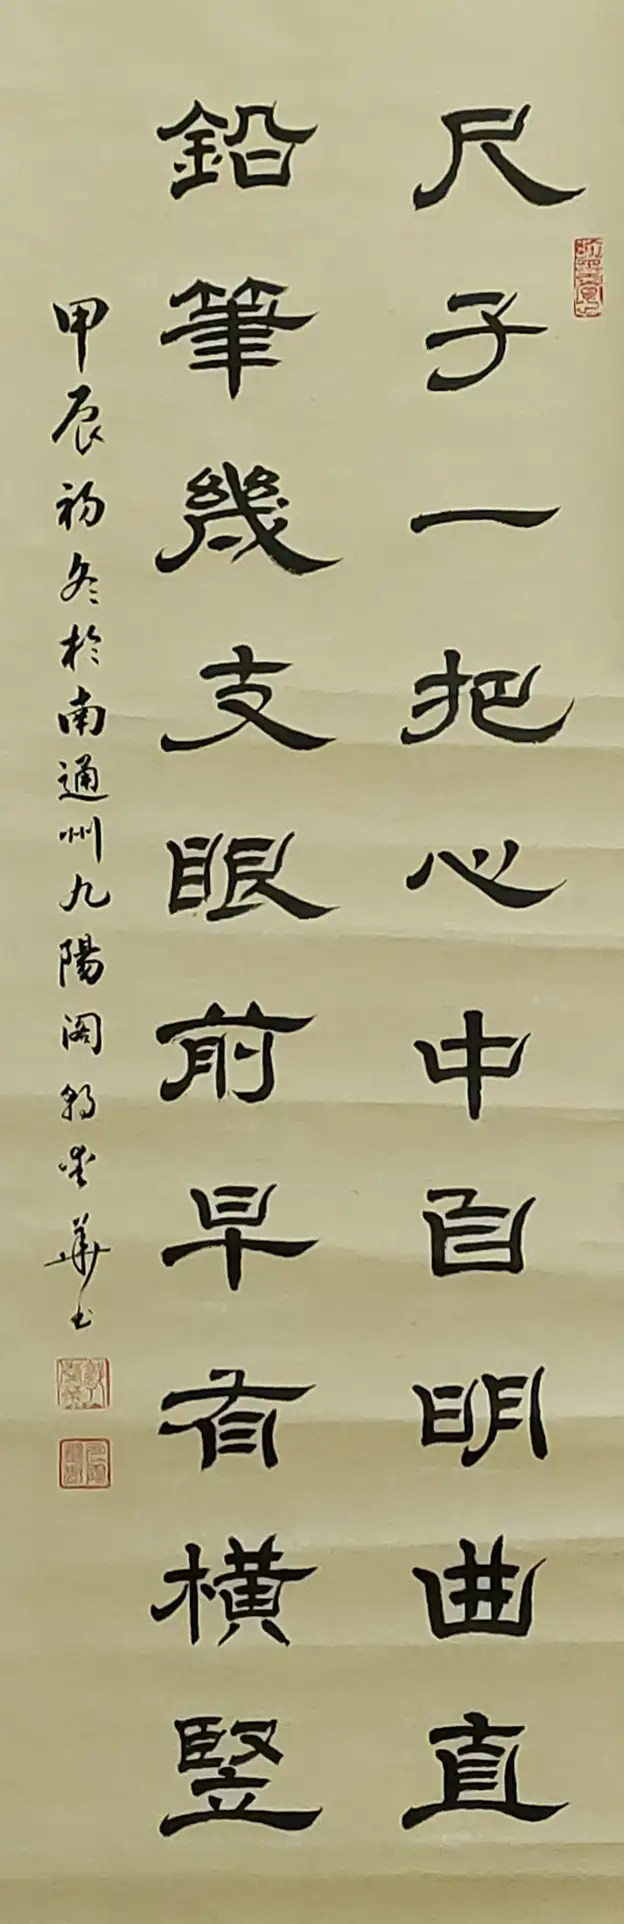 尺子一把心中自明曲直
鉛筆幾支眼前早有橫竪
甲辰初冬於南通州九陽阁 華书